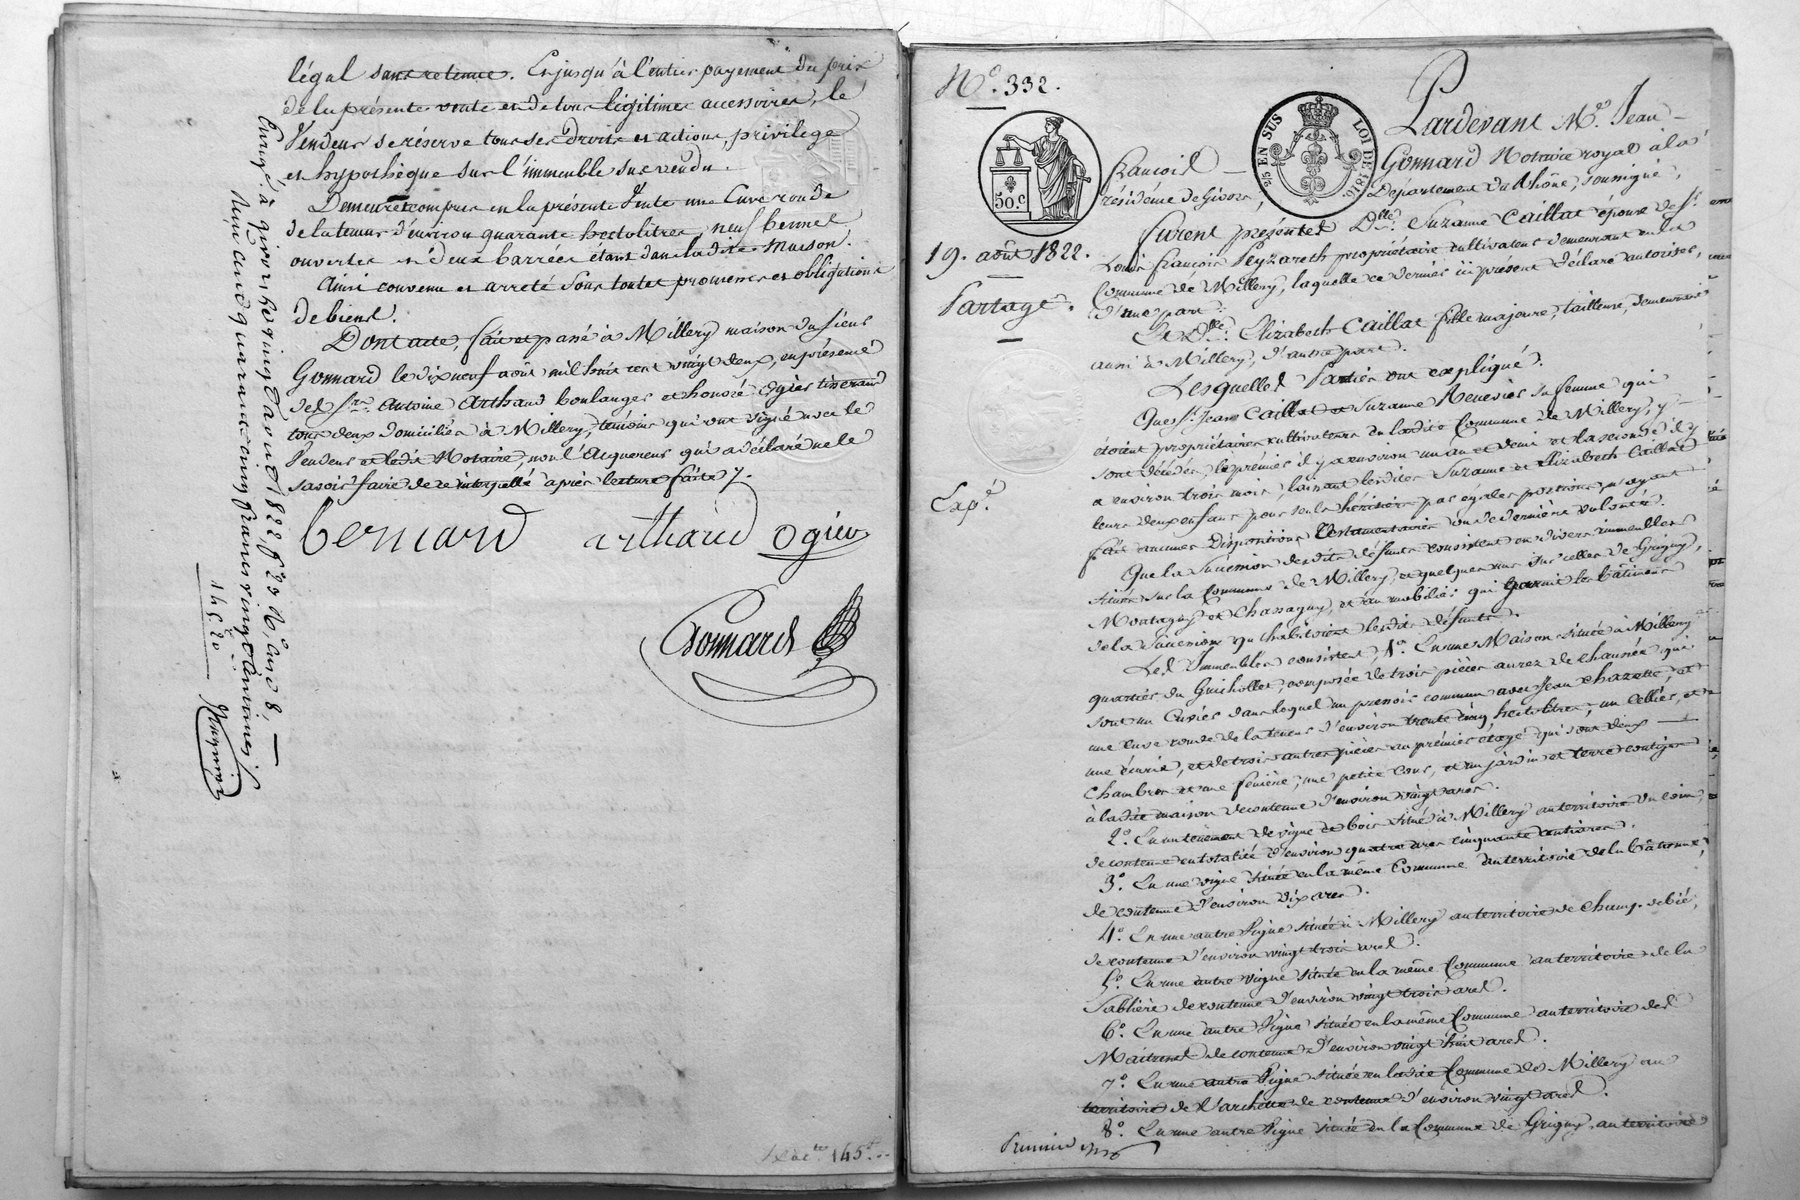 légal sans retenue. Et jusqu'à l'entier payement du prix
de la présente vente et de tous légitimes accessoires, le
Vendeur se réserve tous ses droits et actions, privilège
et hypothèque sur l'immeuble sus vendu.
Demeure compris en la présente Vente une Cuve ronde
de la teneur d'environ quarante hectolitres, neuf bennes
ouvertes et deux barrées étant dans ladite Maison.
Ainsi convenu et arreté sous toutes promesses et obligations
de biens.
Dont acte, fait et passé à Millery maison du sieur
Gonnard le dix neuf août mil huit cent vingt deux, en présence
des Srs Antoine Arthaud boulanger et honoré Ogier tisserand
tous deux domiciliés à Millery, témoins qui ont signé avec le
Vendeur et ledit Notaire, non l'Acquereur qui a déclaré ne le
savoir faire de ce interpellé après lecture faite.
bernard arthaud Ogier
Gonnard
Enregé. à Givors le vingt août 1822, fo 23 Ro, Case 8,
Reçu cent quarante cinq francs vingt centimes
145 20
145
No. 332.
50.c
2/5 EN SUS LOI DE 1816
19. août 1822.
Partage.
Expé.
Pardevant Me. Jean
François Gonnard Notaire royal à la
résidence de Givors, Département du Rhône, soussigné,
Furent présentes Dlle. Suzanne Caillat épouse de Sr.
Louis François Peyzareth propriétaire cultivateur demeurant en la
Commune de Millery, laquelle ce dernier ici présent déclare autoriser,
d'une part.
Et Dlle. Elizabeth Caillat fille majeure, tailleuse, demeurant
aussi à Millery, d'autre part.
Lesquelles Parties ont expliqué.
Que Sr. Jean Caillat et Suzanne Renevier sa femme qui
étoient propriétaires cultivateurs en ladite Commune de Millery, y
sont décédés le prémier il y a environ un an et demi et la seconde il y
a environ trois mois, laissant lesdites Suzanne et Elizabeth Caillat
leurs deux enfans pour seuls héritiers par égales portions, n'ayant
fait aucunes Dispositions Testamentaires ou de dernière volonté.
Que la Succession desdits défunts consistent en divers immeubles
situés sur la Commune de Millery, et quelques uns sur celles de Grigny,
Montagny et Chassagny, et au mobilier qui garnit les bâtimens
de la Succession qu'habitoient lesdits défunts.
Les Immeubles consistent 1o. En une Maison située à Millery
quartier du Guichollet, composée de trois pièces au rez de chaussée qui
sont un Cuvier dans lequel un pressoir commun avec Jean Chazette, et
une Cuve ronde de la teneur d'environ trente cinq hectolitres, un Cellier, et
une écurie, et de trois autres pièces au prémier étage qui sont deux
Chambres et une fenière, une petite Cour, et un jardin et terre contigus
à ladite maison de contenue d'environ vingt ares.
2o. En un tenement de vigne et bois situé à Millery au territoire du coin,
de contenue en totalité d'environ quatre ares cinquante centiares.
3o. En une vigne située en la même Commune au territoire de la Bâtonne,
de contenue d'environ dix ares.
4o. En une autre Vigne située à Millery au territoire de Champ. debié,
de contenue d'environ vingt trois ares.
5o. En une autre vigne située en la même Commune au territoire de la
Sablière de contenue d'environ vingt trois ares.
6o. En une autre Vigne située en la même Commune au territoire des
Maitrises de contenue d'environ vingt huit ares.
7o. En une autre Vigne située en ladite Commune de Millery au
territoire de Varchette de contenue d'environ vingt ares.
8o. En une autre Vigne située en la Commune de Grigny au territoire